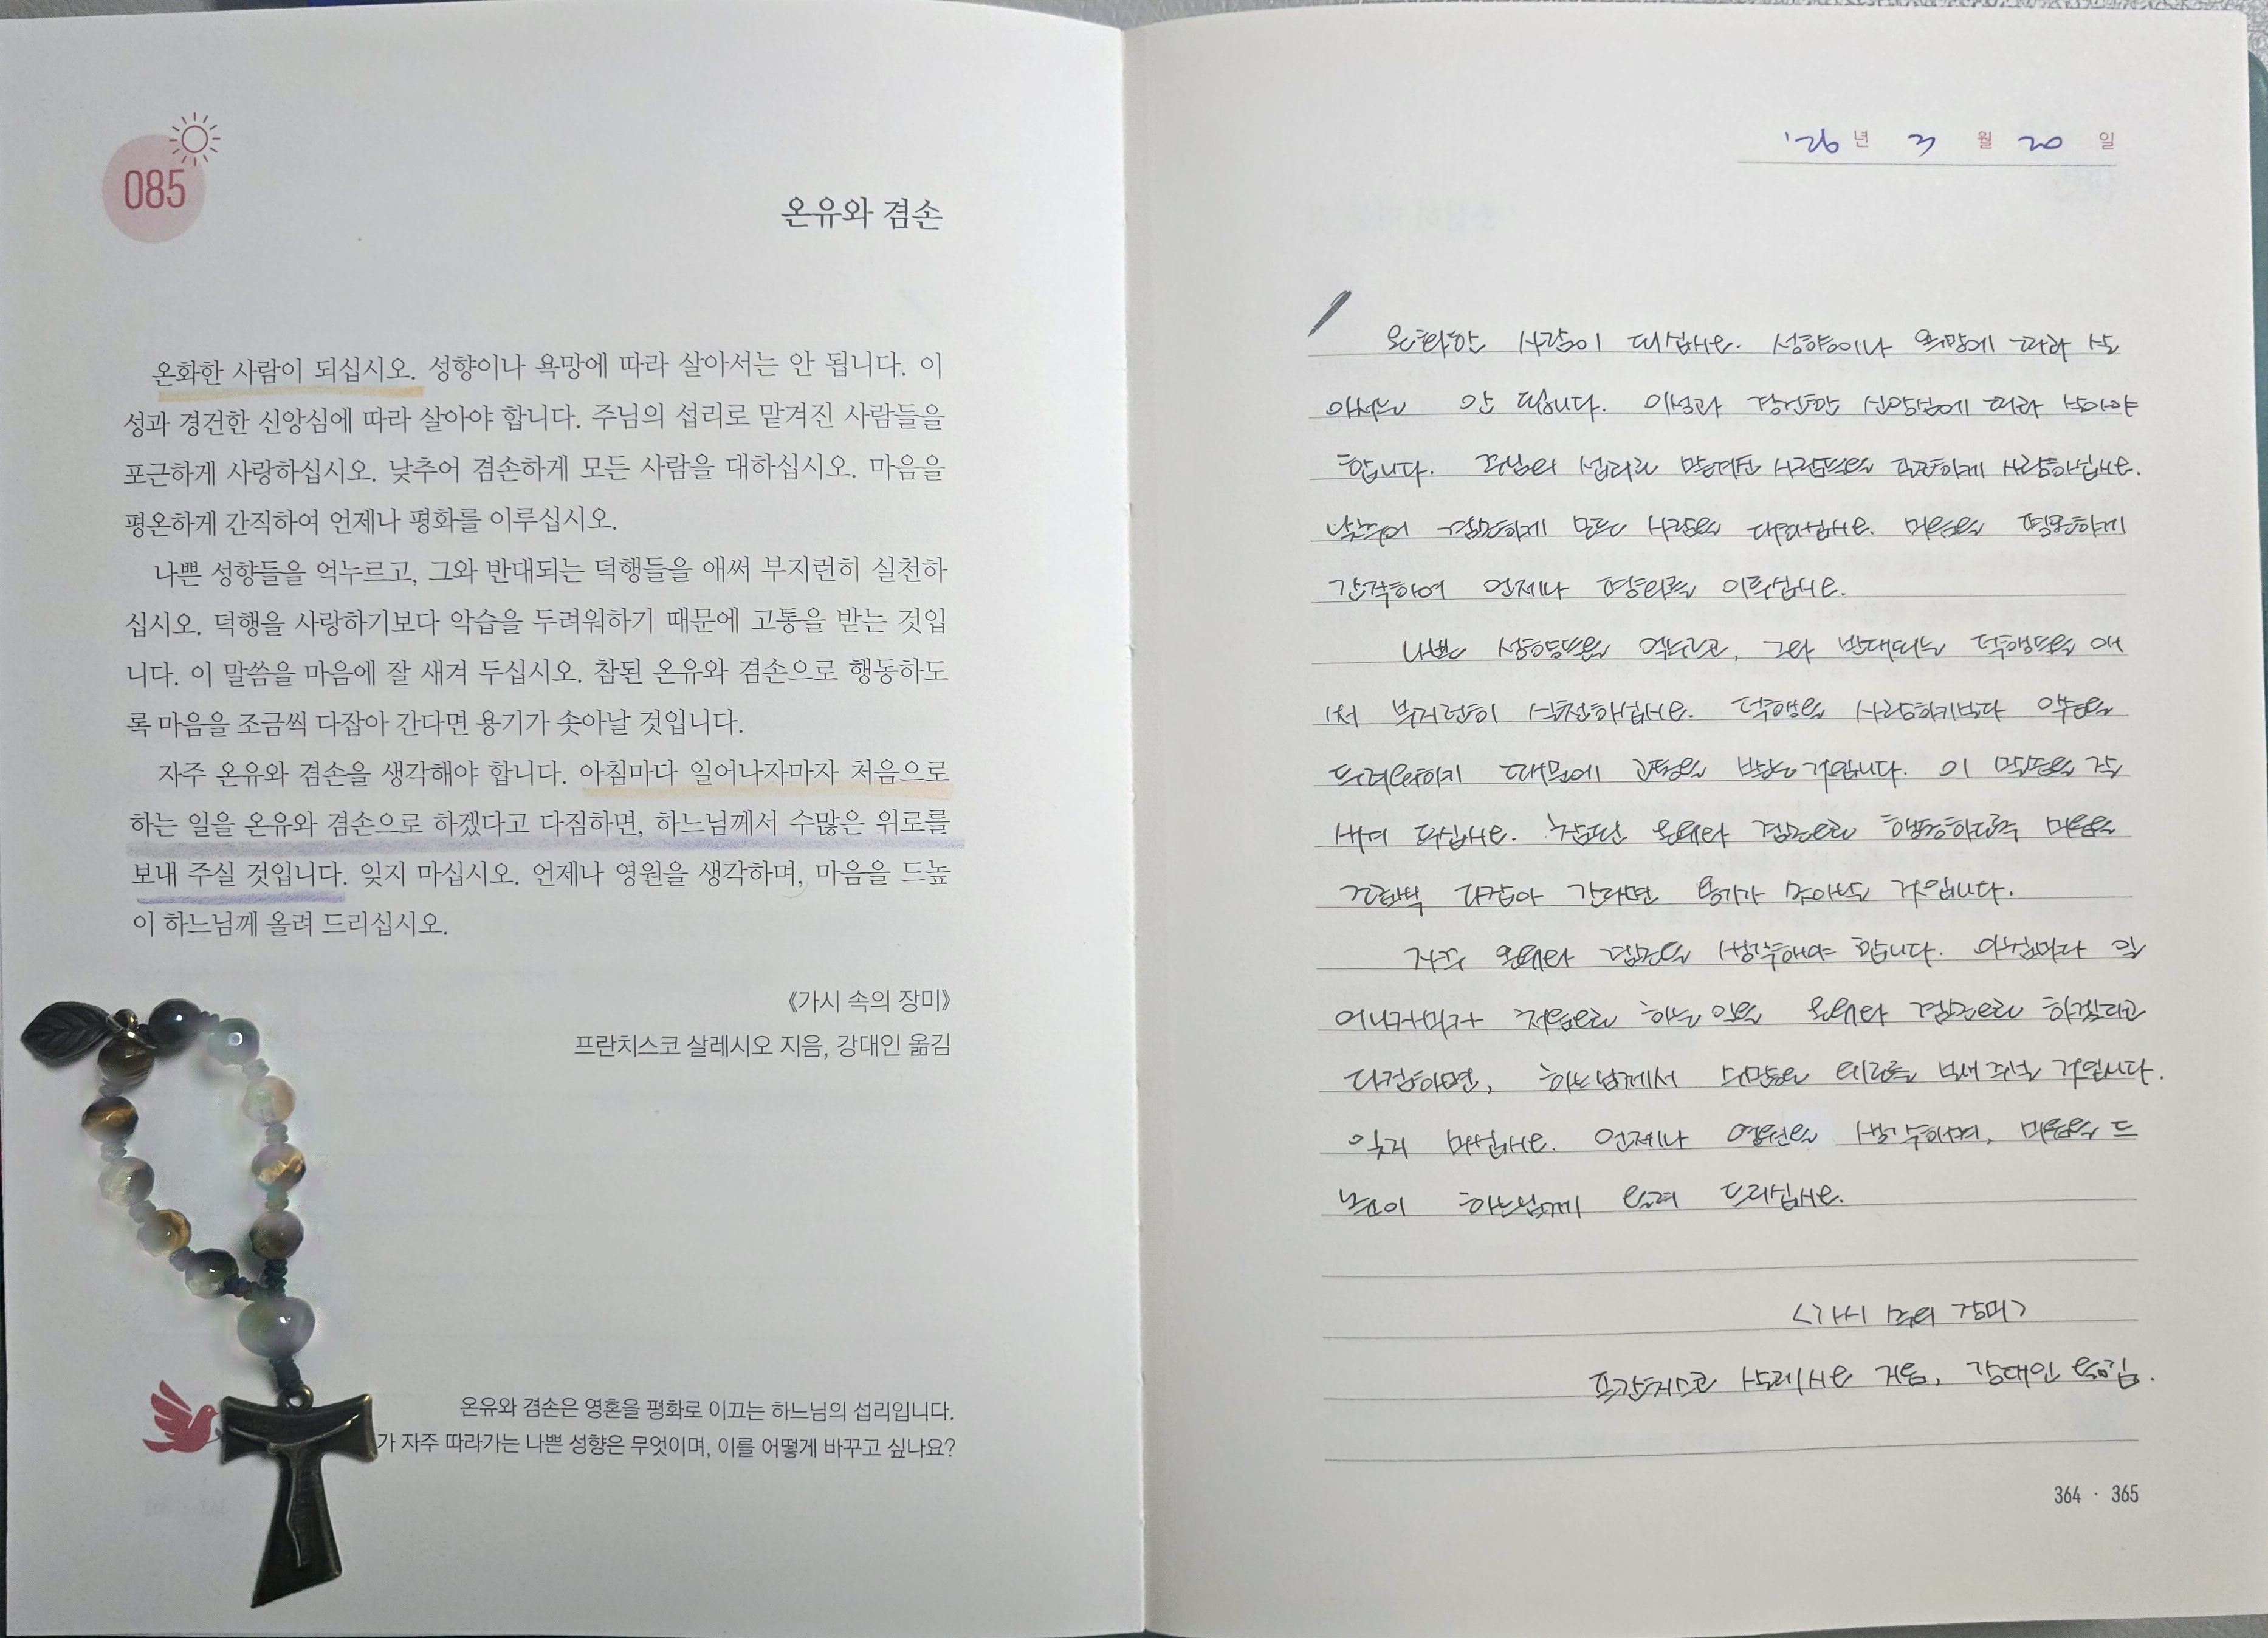 085
온유와 겸손
온화한 사람이 되십시오. 성향이나 욕망에 따라 살아서는 안 됩니다. 이
성과 경건한 신앙심에 따라 살아야 합니다. 주님의 섭리로 맡겨진 사람들을
포근하게 사랑하십시오. 낮추어 겸손하게 모든 사람을 대하십시오. 마음을
평온하게 간직하여 언제나 평화를 이루십시오.
나쁜 성향들을 억누르고, 그와 반대되는 덕행들을 애써 부지런히 실천하
십시오. 덕행을 사랑하기보다 악습을 두려워하기 때문에 고통을 받는 것입
니다. 이 말씀을 마음에 잘 새겨 두십시오. 참된 온유와 겸손으로 행동하도
록 마음을 조금씩 다잡아 간다면 용기가 솟아날 것입니다.
자주 온유와 겸손을 생각해야 합니다. 아침마다 일어나자마자 처음으로
하는 일을 온유와 겸손으로 하겠다고 다짐하면, 하느님께서 수많은 위로를
보내 주실 것입니다. 잊지 마십시오. 언제나 영원을 생각하며, 마음을 드높
이 하느님께 올려 드리십시오.
《가시 속의 장미》
프란치스코 살레시오 지음, 강대인 옮김
온유와 겸손은 영혼을 평화로 이끄는 하느님의 섭리입니다.
가 자주 따라가는 나쁜 성향은 무엇이며, 이를 어떻게 바꾸고 싶나요?
'26년 3월 20일
온화한 사람이 되십시오. 성향이나 욕망에 따라 살
아서는 안 됩니다. 이성과 경건한 신앙심에 따라 살아야
합니다. 주님의 섭리로 맡겨진 사람들을 포근하게 사랑하십시오.
낮추어 겸손하게 모든 사람을 대하십시오. 마음을 평온하게
간직하여 언제나 평화를 이루십시오.
나쁜 성향들을 억누르고, 그와 반대되는 덕행들을 애
써 부지런히 실천하십시오. 덕행을 사랑하기보다 악습을
두려워하기 때문에 고통을 받는 것입니다. 이 말씀을 잘
새겨 두십시오. 참된 온유와 겸손으로 행동하도록 마음을
조금씩 다잡아 간다면 용기가 솟아날 것입니다.
자주 온유와 겸손을 생각해야 합니다. 아침마다 일
어나자마자 처음으로 하는 일을 온유와 겸손으로 하겠다고
다짐하면, 하느님께서 수많은 위로를 보내 주실 것입니다.
잊지 마십시오. 언제나 영원을 생각하며, 마음을 드
높이 하느님께 올려 드리십시오.
<가시 속의 장미>
프란치스코 살레시오 지음, 강대인 옮김.
364 · 365